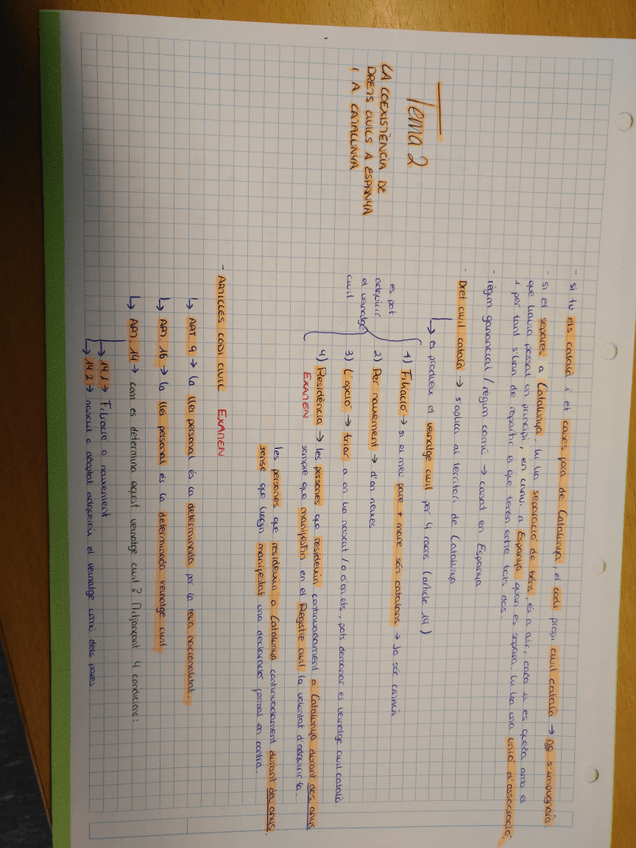 Tema 2
LA COEXISTÈNCIA DE
DRETS CIVILS A ESPANYA
I A CATALUNYA
- si tu ets català i et cases fora de Catalunya, el codi propi civil català → no s'impugnarà.
- si et separes a Catalunya hi ha separació de béns, és a dir, cada u es queda amb el
que havia posat un principi, en canvi a Espanya quan es separa hi ha una unió d'associació
i per tant s'han de repartir el que tenen entre tots dos.
- règim ganancial / règim comú → casat en Espanya
- Dret civil català → s'aplica al territori de Catalunya
↳ es produeix el veinatge civil per 4 raons (article 14)
es pot
adquirir
el veinatge
civil
1) Filiació → si el meu pare + mare són catalans → jo sóc
2) Per naixement → d'on neixes
3) L'opció → triar a on ha nascut / o d'on ets, pots demanar el veinatge civil català
4) Residència → les persones que resideixin continuadament a Catalunya durant dos anys
EXAMEN sempre que manifestin en el Registre civil la voluntat d'adquirir-la.
les persones que resideixin a Catalunya continuadament durant deu anys
sense que hagin manifestat una declaració formal en contra.
- ARTICLES CODI CIVIL EXAMEN
↳ ART 9 → la llei personal és la determinada por la nacionalitat.
↳ ART. 16 → la llei personal és la determinada veinatge civil.
↳ ART. 14 → com es determina aquest veinatge civil? Mitjançant 4 condicions:
↳ 14.1 → Filiació o naixement
↳ 14.2 → nascut o adoptat adquireix el veinatge comú dels pares